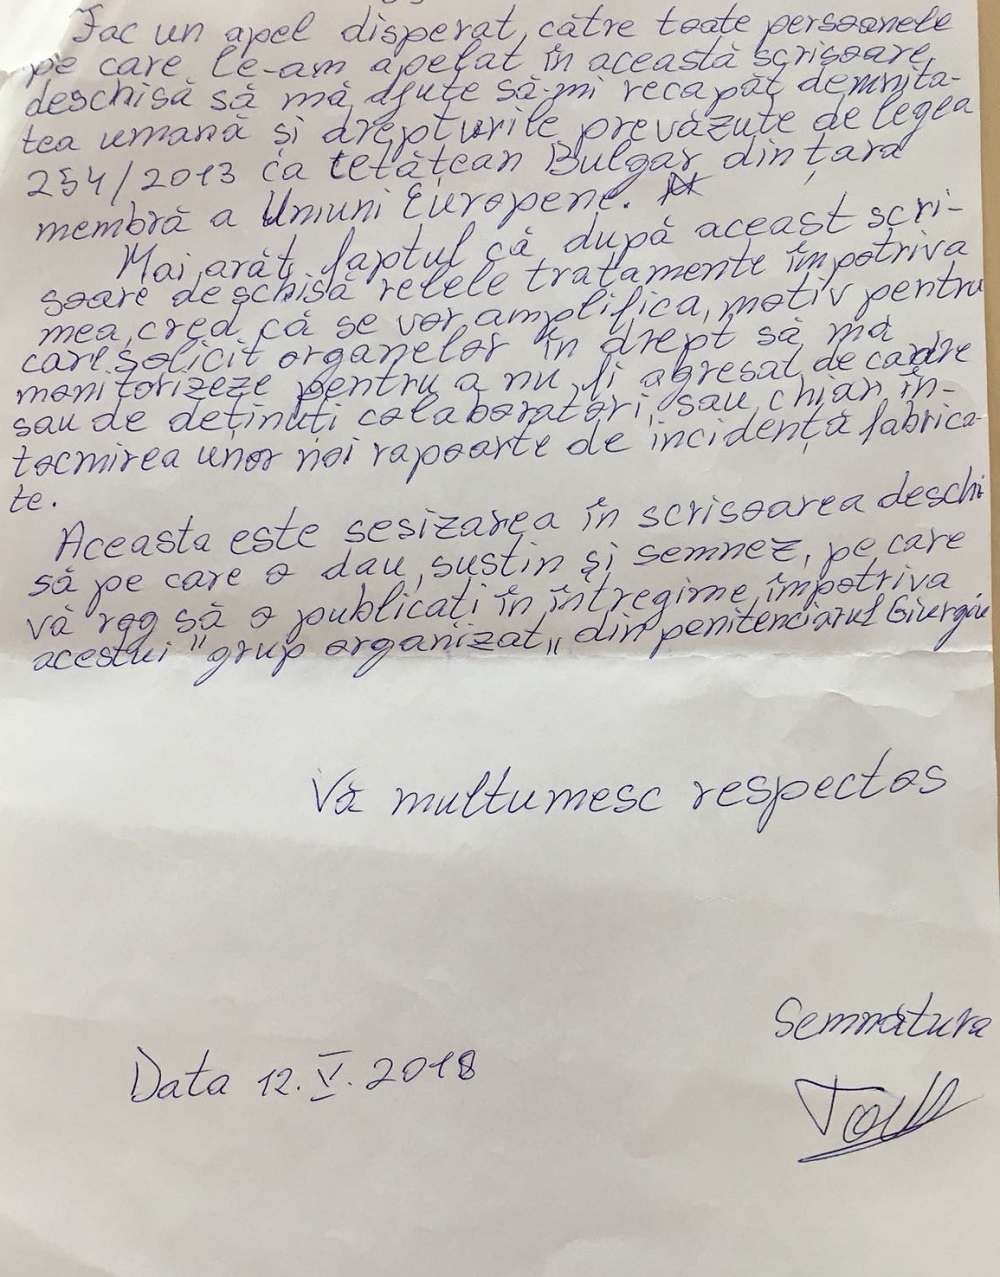 Fac un apel disperat, către toate persoanele
pe care le-am apelat în această scrisoare
deschisă să mă ajute să-mi recapăt demnita-
tea umană și drepturile prevăzute de legea
254/2013 ca cetățean Bulgar din țara
membră a Uniuni Europene.
Mai arăt, faptul că după aceast scri-
soare deschisă relele tratamente împotriva
mea, cred că se vor amplifica, motiv pentru
care solicit organelor în drept să mă
monitorizeze pentru a nu fi agresat de cadre
sau de deținuți colaboratori, sau chiar în-
tocmirea unor noi rapoarte de incidență fabrica-
te.
Aceasta este sesizarea în scrisoarea deschi
să pe care o dau, sustin și semnez, pe care
vă rog să o publicați în întregime, împotriva
acestui "grup organizat„ din penitenciarul Giurgiu
Vă multumesc respectos
Semnătura
Data 12.V.2018